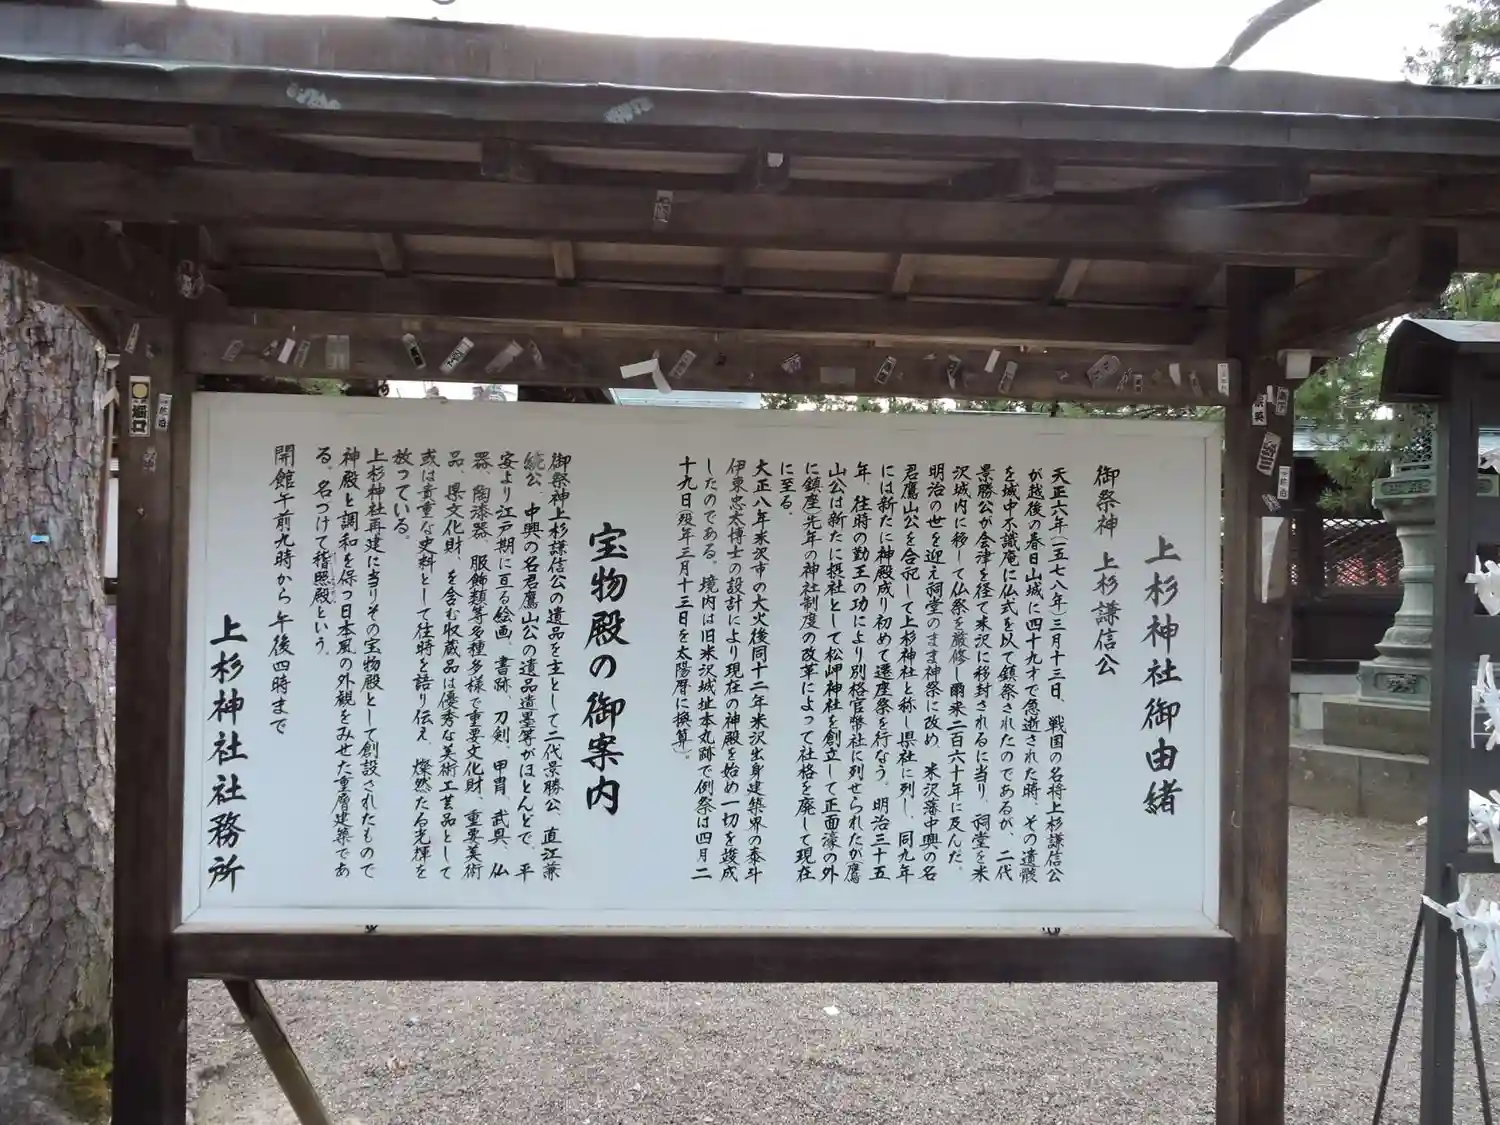 上杉神社御由緒
御祭神 上杉謙信公
天正六年(一五七八年)三月十三日、戦国の名将上杉謙信公
が越後の春日山城に四十九才で急逝された時、その遺骸
を城中不識庵に仏式を以て鎮祭されたのであるが、二代
景勝公が会津を径て米沢に移封されるに当り、祠堂を米
沢城内に移して仏祭を厳修し爾来二百六十年に及んだ。
明治の世を迎え祠堂のまま神祭に改め、米沢藩中興の名
君鷹山公を合祀して上杉神社と称し県社に列し、同九年
には新たに神殿成り初めて遷座祭を行なう。明治三十五
年、往時の勤王の功により別格官幣社に列せられたが鷹
山公は新たに摂社として松岬神社を創立して正面濠の外
に鎮座先年の神社制度の改革によって社格を廃して現在
に至る。
大正八年米沢市の大火後同十二年米沢出身建築界の泰斗
伊東忠太博士の設計により現在の神殿を始め一切を竣成
したのである。境内は旧米沢城址本丸跡で例祭は四月二
十九日歿年三月十三日を太陽暦に換算)。
宝物殿の御案内
御祭神上杉謙信公の遺品を主として二代景勝公、直江兼
続公、中興の名君鷹山公の遺品遺墨等がほとんどで、平
安より江戸期に亘る絵画、書跡、刀剣、甲冑、武具、仏
器、陶漆器、服飾類等多種多様で重要文化財、重要美術
品、県文化財、を含む収蔵品は優秀な美術工芸品として
或は貴重な史料として往時を語り伝え、燦然たる光輝を
放っている。
上杉神社再建に当りその宝物殿として創設されたもので
神殿と調和を保つ日本風の外観をみせた重層建築であ
る。名つけて稽照殿という。
開館午前九時から午後四時まで
上杉神社社務所
堀口